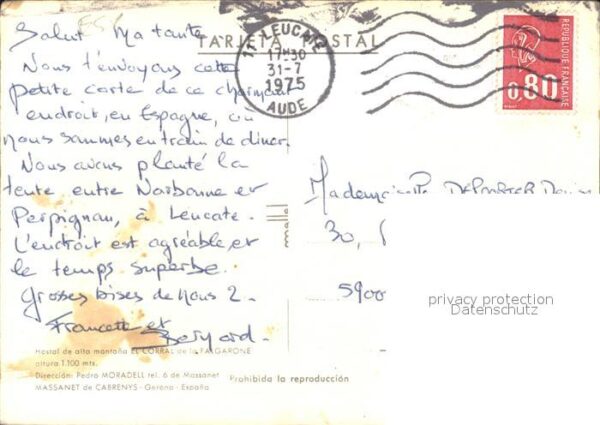 Salut ma tante
Nous t'envoyons cette
petite carte de ce charmant
endroit, en Espagne, où
nous sommes en train de dîner.
Nous avons planté la
tente entre Narbonne et
Perpignan, à Leucate.
L'endroit est agréable, et
le temps superbe.
Grosses bises de nous 2.
Francette et
Bernard.
TARJETA POSTAL
11 LEUCATE
17H30
31-7
1975
AUDE
REPUBLIQUE FRANÇAISE
0,80
Mademoiselle
30,
5900
privacy protection
Datenschutz
Hostal de alta montaña EL CORRAL de la FALGARONE
altura 1.100 mts.
Dirección: Pedro MORADELL tel. 6 de Massanet
MASSANET de CABRENYS - Gerona - España
Prohibida la reproducción